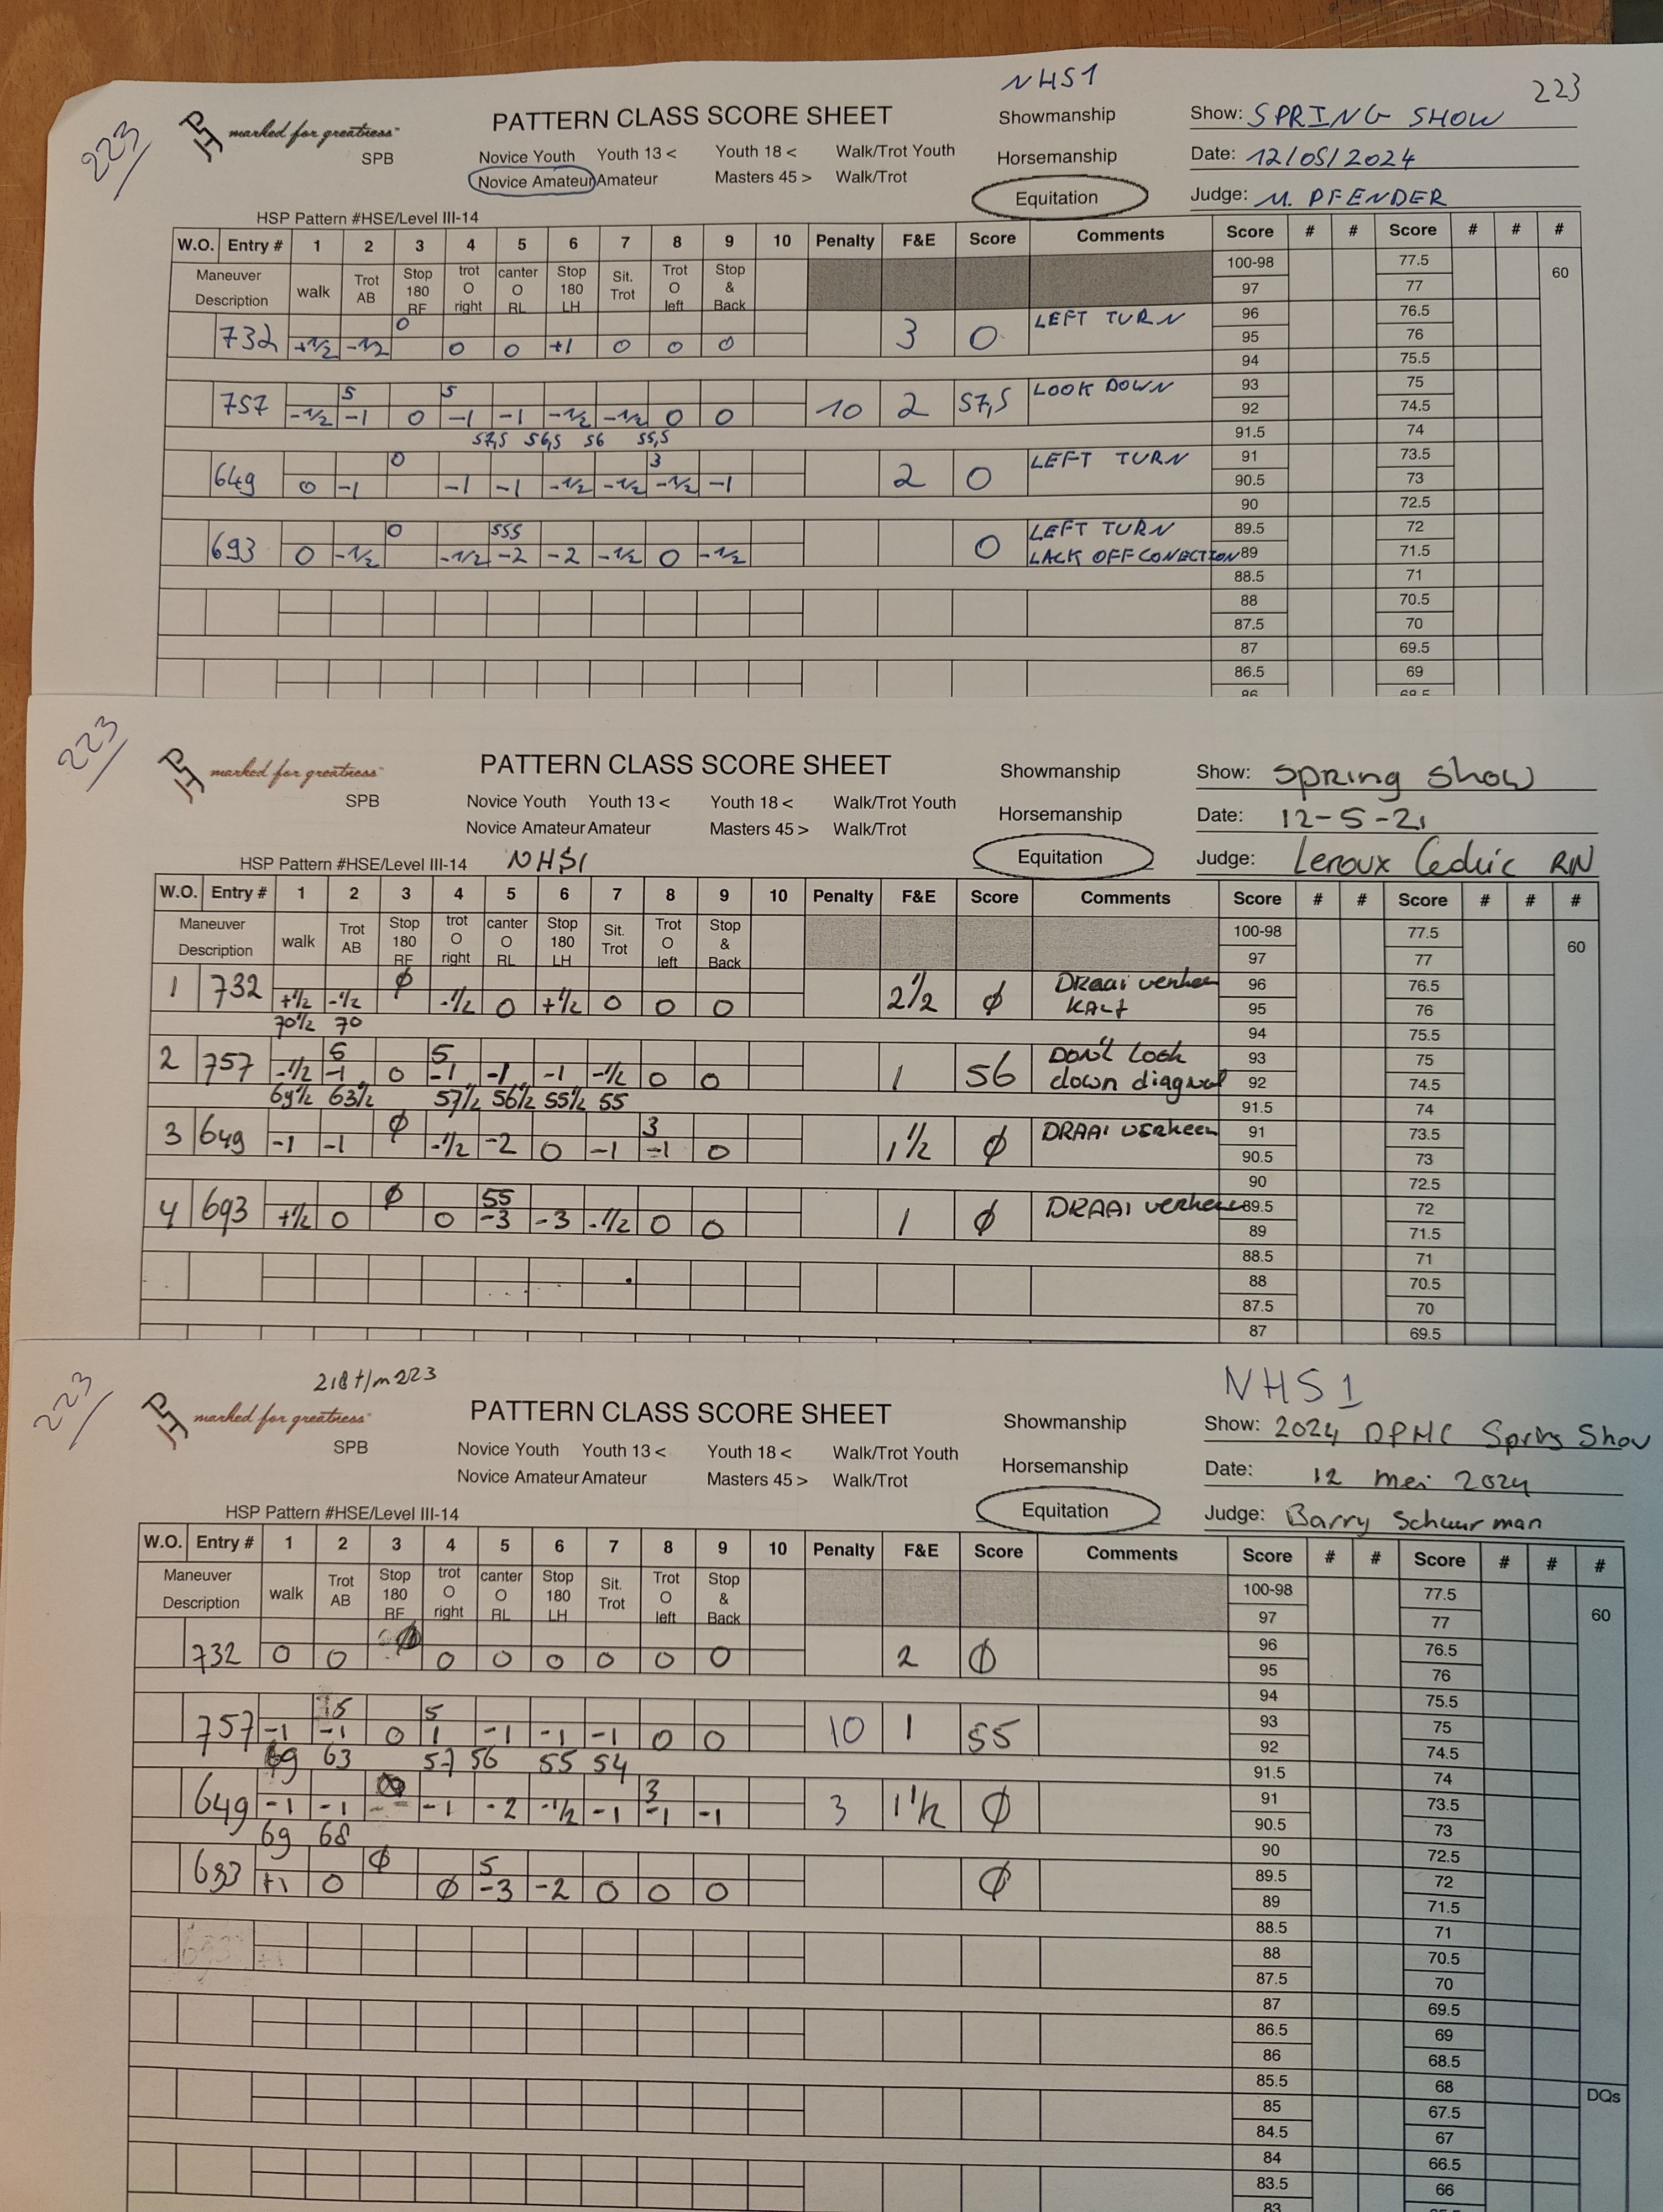 NHS1
223
223
marked for greatness™
SPB
PATTERN CLASS SCORE SHEET
Novice Youth Youth 13 < Youth 18 < Walk/Trot Youth
Novice Amateur Amateur Masters 45 > Walk/Trot
Showmanship
Horsemanship
Equitation
Show: SPRING SHOW
Date: 12/05/2024
Judge: M. PFENDER
HSP Pattern #HSE/Level III-14
W.O. Entry # 1 2 3 4 5 6 7 8 9 10 Penalty F&E Score Comments Score # # Score # # #
Maneuver Description walk Trot AB Stop 180 RF trot O right canter O RL Stop 180 LH Sit. Trot Trot O left Stop & Back
100-98 77.5 60
97 77
0
732 +1/2 -1/2 0 0 +1 0 0 0 3 0 LEFT TURN
96 76.5
95 76
94 75.5
5 5
757 -1/2 -1 0 -1 -1 -1/2 -1/2 0 0 10 2 57,5 LOOK DOWN
57,5 56,5 56 55,5
93 75
92 74.5
91.5 74
0 3
649 0 -1 -1 -1 -1/2 -1/2 -1/2 -1 2 0 LEFT TURN
91 73.5
90.5 73
90 72.5
0 555
693 0 -1/2 -1/2 -2 -2 -1/2 0 -1/2 0 LEFT TURN
LACK OFF CONECTION
89.5 72
89 71.5
88.5 71
88 70.5
87.5 70
87 69.5
86.5 69
86 68.5
223
marked for greatness™
SPB
PATTERN CLASS SCORE SHEET
Novice Youth Youth 13 < Youth 18 < Walk/Trot Youth
Novice Amateur Amateur Masters 45 > Walk/Trot
Showmanship
Horsemanship
Equitation
Show: Spring Show
Date: 12-5-21
Judge: Leroux Cedric RN
HSP Pattern #HSE/Level III-14 NHS1
W.O. Entry # 1 2 3 4 5 6 7 8 9 10 Penalty F&E Score Comments Score # # Score # # #
Maneuver Description walk Trot AB Stop 180 RF trot O right canter O RL Stop 180 LH Sit. Trot Trot O left Stop & Back
100-98 77.5 60
97 77
Ø
1 732 +1/2 -1/2 -1/2 0 +1/2 0 0 0 2 1/2 Ø DRaai verkeer
KALF
70 1/2 70
96 76.5
95 76
94 75.5
5 5
2 757 -1/2 -1 0 -1 -1 -1 -1/2 0 0 1 56 DON't Look
down diagnal
69 1/2 63 1/2 57 1/2 56 1/2 55 1/2 55
93 75
92 74.5
91.5 74
Ø 3
3 649 -1 -1 -1/2 -2 0 -1 -1 0 1 1/2 Ø DRAAI verkeer
91 73.5
90.5 73
90 72.5
Ø 55
4 693 +1/2 0 0 -3 -3 -1/2 0 0 1 Ø DRAAI verkeer
89.5 72
89 71.5
88.5 71
88 70.5
87.5 70
87 69.5
223
218 t/m 223
marked for greatness™
SPB
PATTERN CLASS SCORE SHEET
Novice Youth Youth 13 < Youth 18 < Walk/Trot Youth
Novice Amateur Amateur Masters 45 > Walk/Trot
Showmanship
Horsemanship
Equitation
NHS1
Show: 2024 DPHC Spring Show
Date: 12 mei 2024
Judge: Barry Schuurman
HSP Pattern #HSE/Level III-14
W.O. Entry # 1 2 3 4 5 6 7 8 9 10 Penalty F&E Score Comments Score # # Score # # #
Maneuver Description walk Trot AB Stop 180 RF trot O right canter O RL Stop 180 LH Sit. Trot Trot O left Stop & Back
100-98 77.5
97 77 60
Ø
732 0 0 0 0 0 0 0 0 2 Ø
96 76.5
95 76
94 75.5
5 5
757 -1 -1 0 1 -1 -1 -1 0 0 10 1 55
69 63 57 56 55 54
93 75
92 74.5
91.5 74
3
649 -1 -1 -1 -2 -1/2 -1 -1 -1 3 1 1/2 Ø
69 68
91 73.5
90.5 73
90 72.5
Ø 5
693 +1 0 Ø -3 -2 0 0 0 Ø
89.5 72
89 71.5
88.5 71
88 70.5
87.5 70
87 69.5
86.5 69
86 68.5
85.5 68 DQs
85 67.5
84.5 67
84 66.5
83.5 66
83